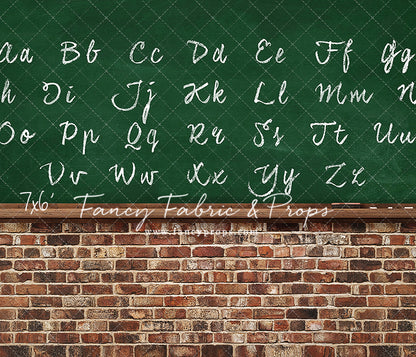 Aa Bb Cc Dd Ee Ff Gg
h Ii Jj Kk Ll Mm N
Oo Pp Qq Rr Ss Tt Uu
Vv Ww Xx Yy Zz
7x6'
Fancy Fabric & Props
www.fancyprops.com